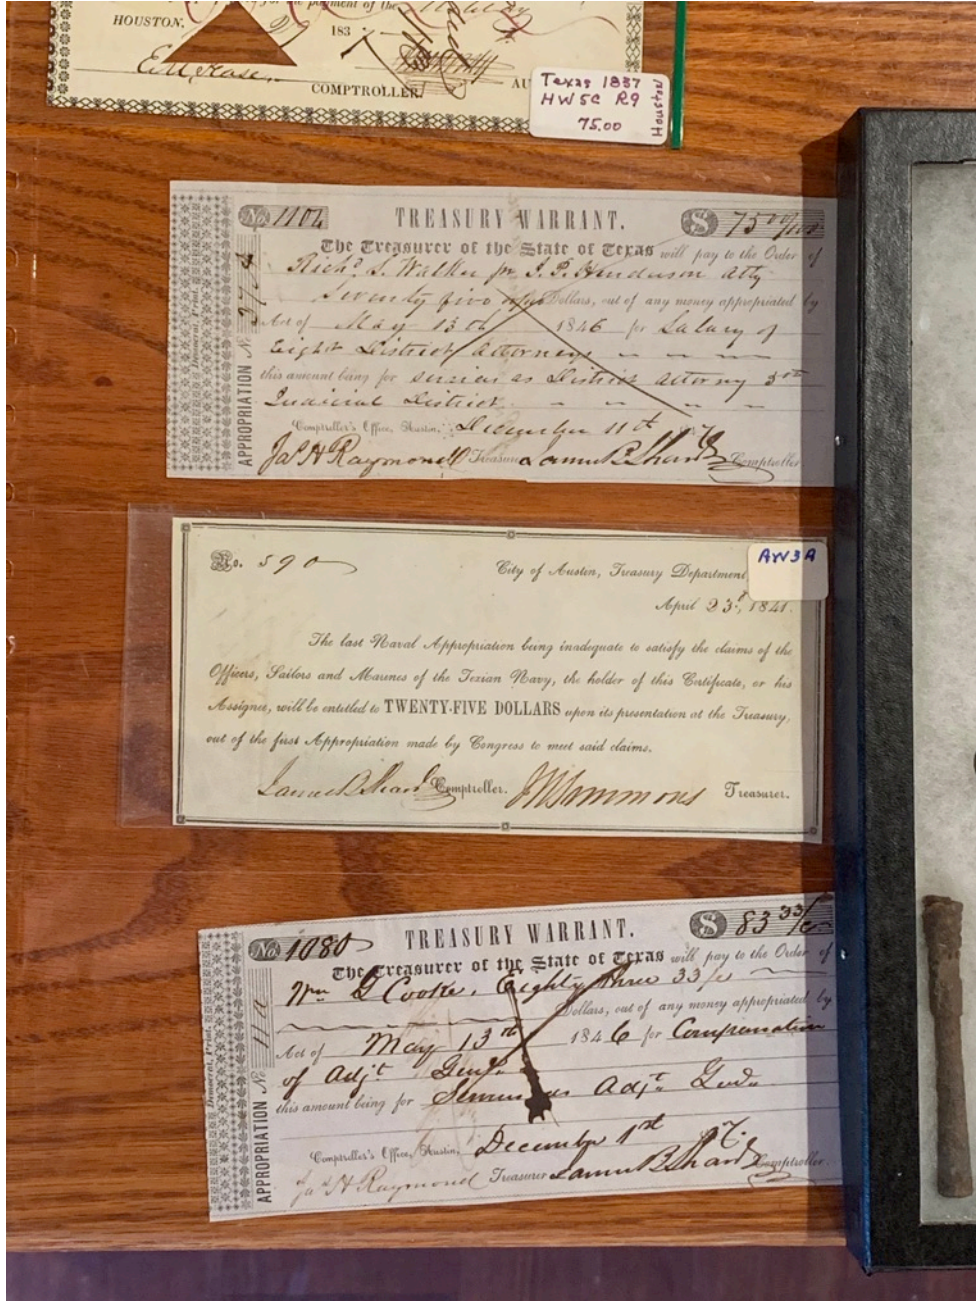 for the payment of the
HOUSTON, 183
COMPTROLLER.
AU
Texas 1837
HW5C R9
75.00
Houston
No. 1104 TREASURY WARRANT. $ 75 00/100
The Treasurer of the State of Texas will pay to the Order of
Richd. S. Walker for J. P. Henderson atty
Seventy five Dollars, out of any money appropriated by
Act of May 13th 1846 for Salary of
Eight District Attorneys
this amount being for services as District Attorney 5th
Judicial District
Comptroller's Office, Austin, December 11th
Jas H Raymond Treasurer Comptroller
APPROPRIATION No
Democrat, Print.
No. 590
AW3A
City of Austin, Treasury Department,
April 23d, 1841.
The last Naval Appropriation being inadequate to satisfy the claims of the
Officers, Sailors and Marines of the Texian Navy, the holder of this Certificate, or his
Assignee, will be entitled to TWENTY-FIVE DOLLARS upon its presentation at the Treasury,
out of the first Appropriation made by Congress to meet said claims.
Comptroller. Treasurer.
No. 1080 TREASURY WARRANT. $ 83 33/c
The Treasurer of the State of Texas will pay to the Order of
Wm G Cooke, Eighty three 33/c
Dollars, out of any money appropriated by
Act of May 13th 1846 for Compensation
of Adjt Genl
this amount being for Services as Adjt Genl
Comptroller's Office, Austin, December 1st
Jas H Raymond Treasurer Comptroller.
APPROPRIATION No
Democrat, Print.